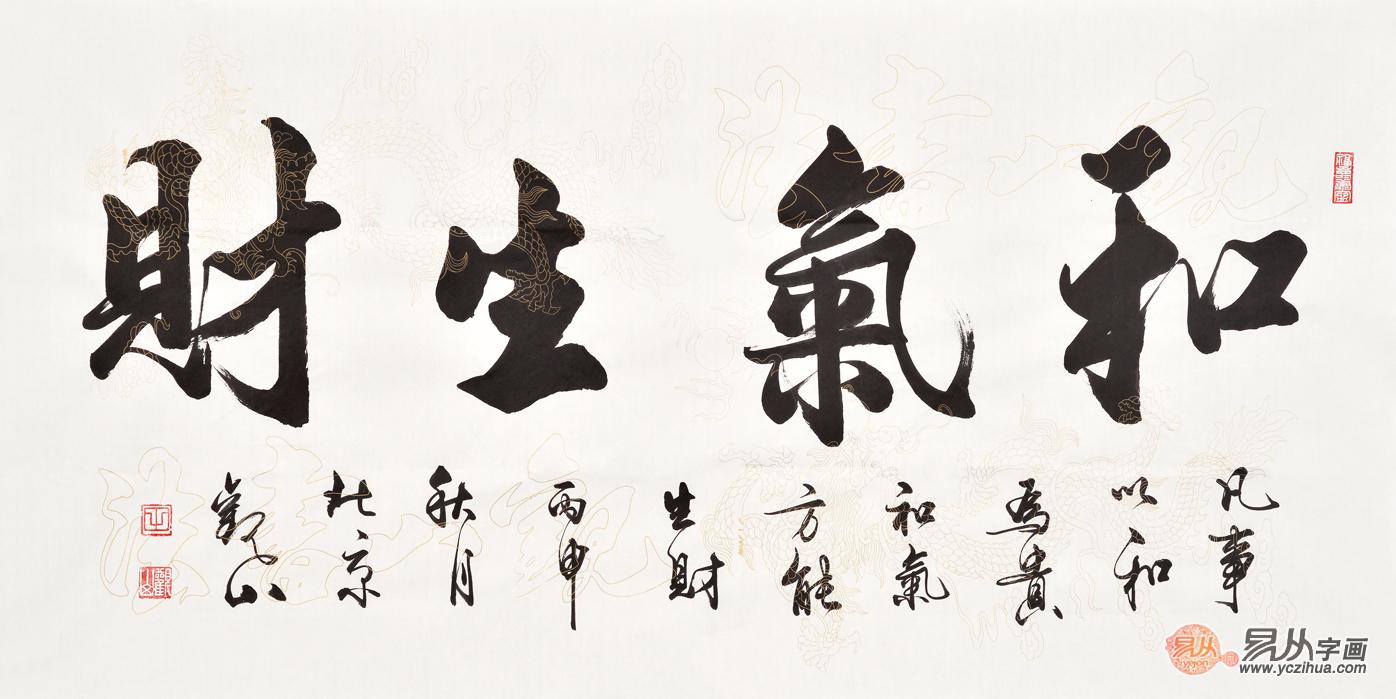 和氣生財
凡事
以和
為貴
和氣
方能
生財
丙申
秋月
北京
觀山
易从字画
www.yczihua.com
yexon